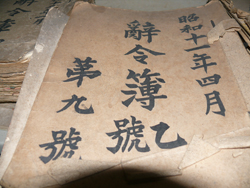 昭和十一年四月
辭令簿乙號
第九號